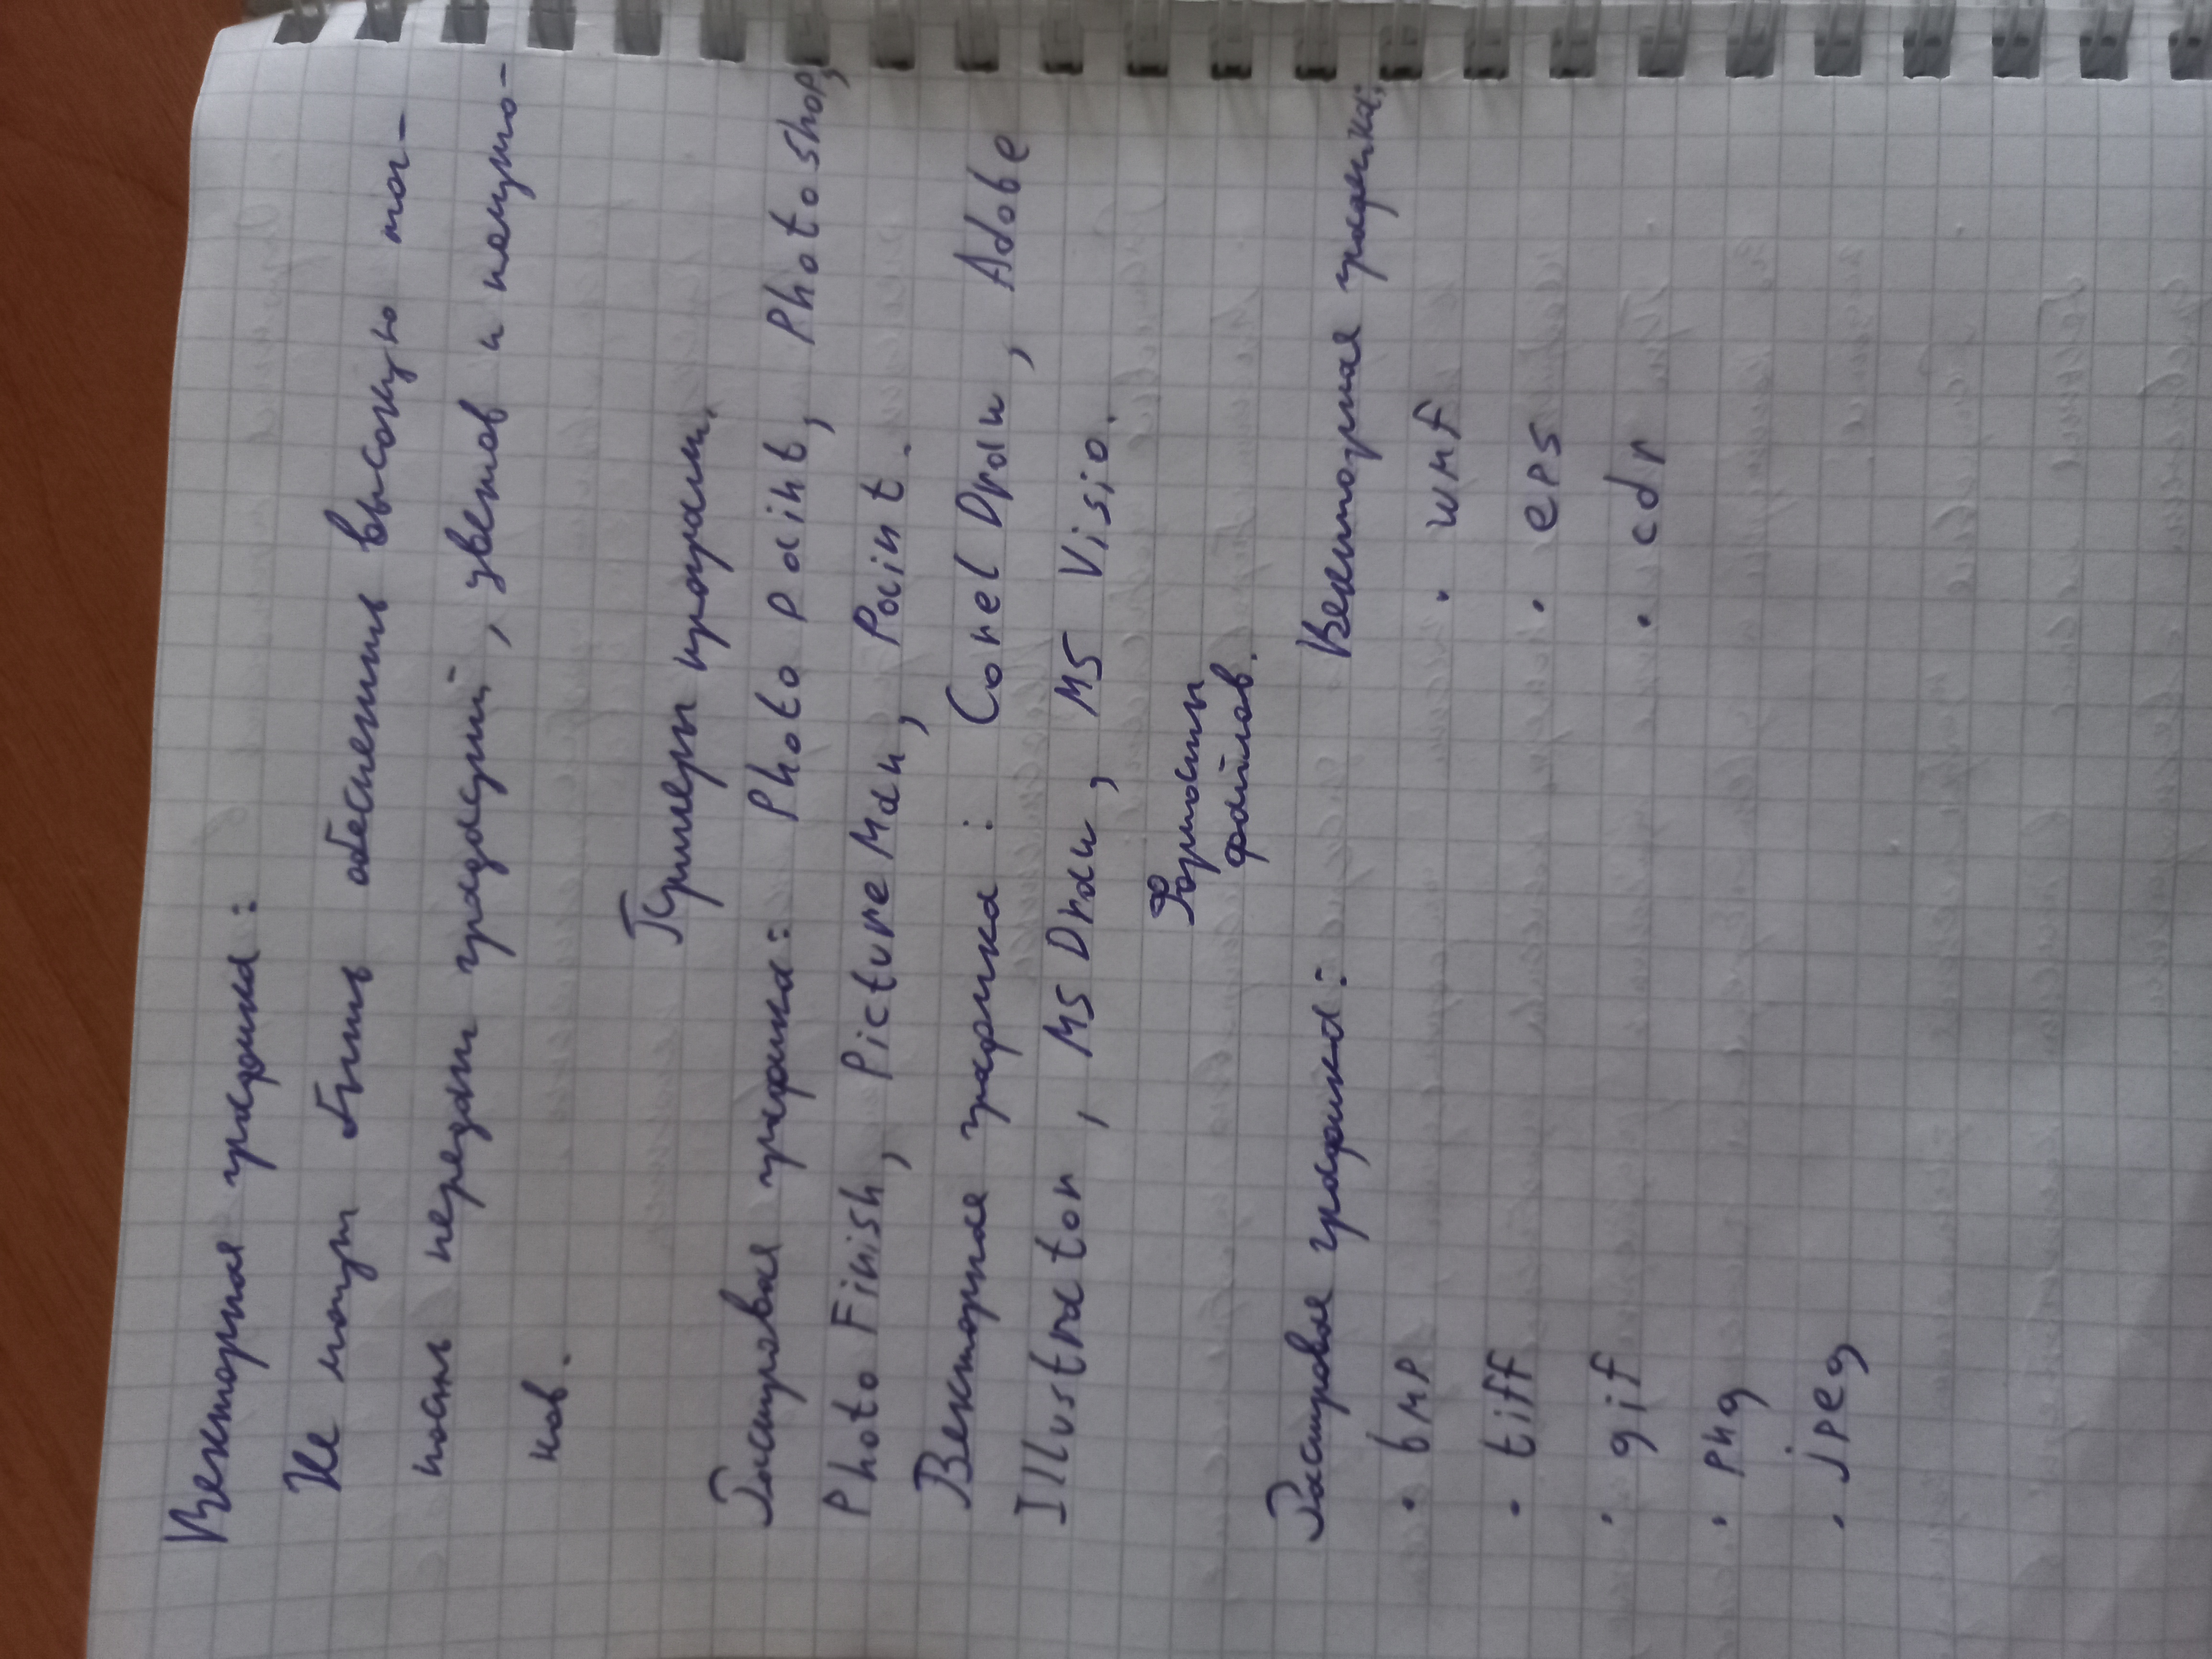 Векторная графика:
Не могут быть обеспечить высокую точ-
ность передачи градаций, цветов и полуто-
нов.
Примеры програм.
Растровая графика: Photo Paint, Photoshop,
Photo Finish, Picture Man, Paint.
Векторная графика: Corel Draw, Adobe
Illustrator, MS Draw, MS Visio.
Форматы
файлов.
Растровая графика: Векторная графика:
• bmp • wmf
• tiff • eps
• gif • cdr
• png
• jpeg